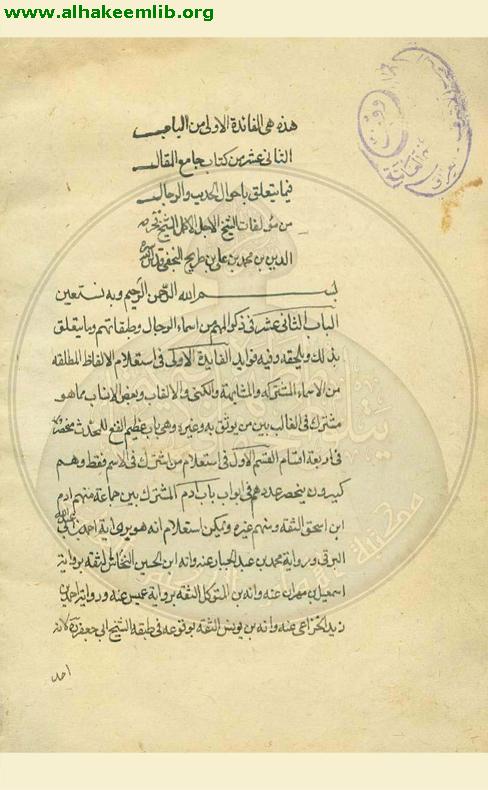 www.alhakeemlib.org
هذه هى الفائدة الاولى من الباب
الثانى عشر من كتاب جامع المقال
فيما يتعلق باحوال الحديث والرجال
من مؤلفات الشيخ الاجل الاكمل الشيخ فخر
الدين بن محمد بن على بن طريح النجفى
بسم الله الرحمن الرحيم وبه نستعين
الباب الثانى عشر فى ذكر المهم من اسماء الرجال وطبقاتهم وما يتعلق
بذلك ويلحقه وفيه فوايد الفايدة الاولى فى استعلام الالفاظ المطلقه
من الاسماء المشتركه والمتشابهة والكنى والالقاب وبعض الانساب مما هو
مشترك فى الغالب بين من يوثق به وغيره وهى باب عظيم النفع للمحدث
فى اربعة اقسام القسم الاول فى استعلام من اشترك فى الاسم فقط وهم
كثيرون ينحصر عددهم فى ابواب باب ادم المشترك بين جماعة منهم ادم
ابن اسحق الثقه ومنهم غيره ويمكن استعلام انه هو برواية احمد بن
البرقى ورواية محمد بن عبد الجبار عنه وانه ابن الحسين النخاس الثقه برواية
اسمعيل بن مهران عنه وانه بن المتوكل الثقه برواية عبيس عنه ورواية احمد بن
زيد الخزاعى عنه وانه بن يونس الثقه بوقوعه فى طبقة الشيخ ابى جعفر
احمد